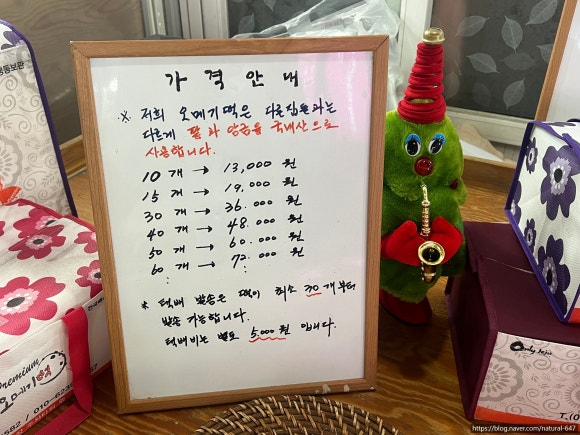 가격안내
※ 저희 오메기떡은 다른집들과는
다르게 팥과 앙금을 국내산으로
사용합니다.
10개 → 13,000원
15개 → 19,000원
30개 → 36,000원
40개 → 48,000원
50개 → 60,000원
60개 → 72,000원
※ 택배 발송은 떡이 최소 30개부터
발송가능합니다.
택배비는 별도 5,000원 입니다.
Premium
오메기떡
Only jeju
T.(0
https://blog.naver.com/natural-647